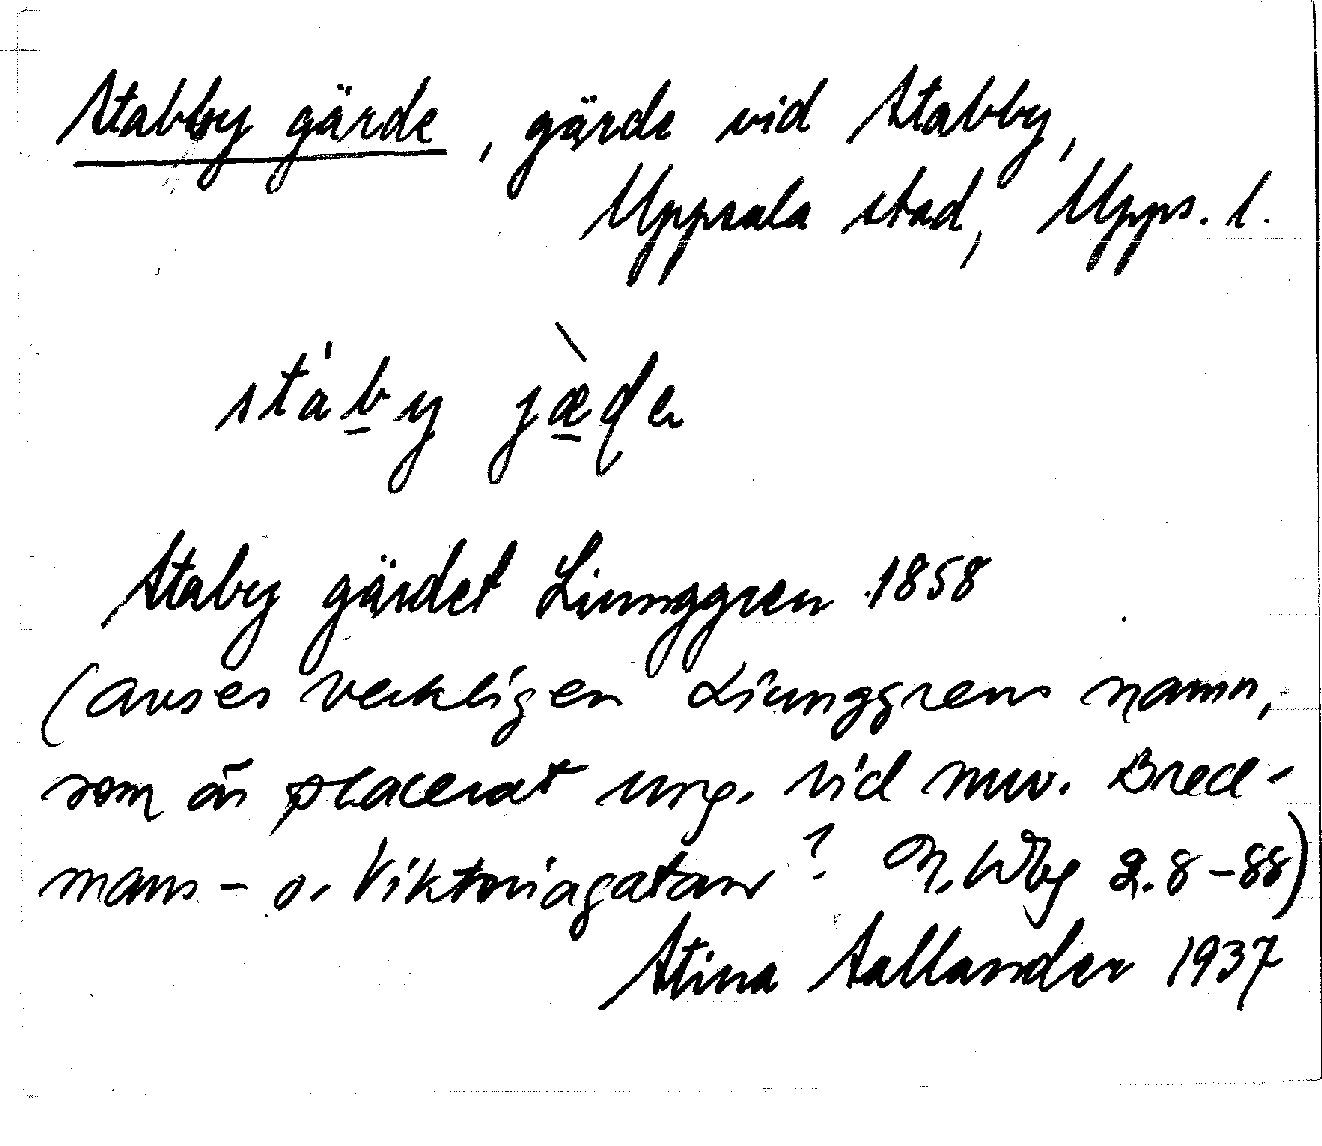 Stabby gärde, gärde vid Stabby,
Uppsala stad, Upps. l.
stàby jæ̀de
Staby gärdet Liunggren 1858
(avses verkligen Liunggrens namn,
som är placerat ung. vid nuv. Bred-
mans- o. Viktoriagatan? M. Wbg 2.8-88)
Stina Sallander 1937